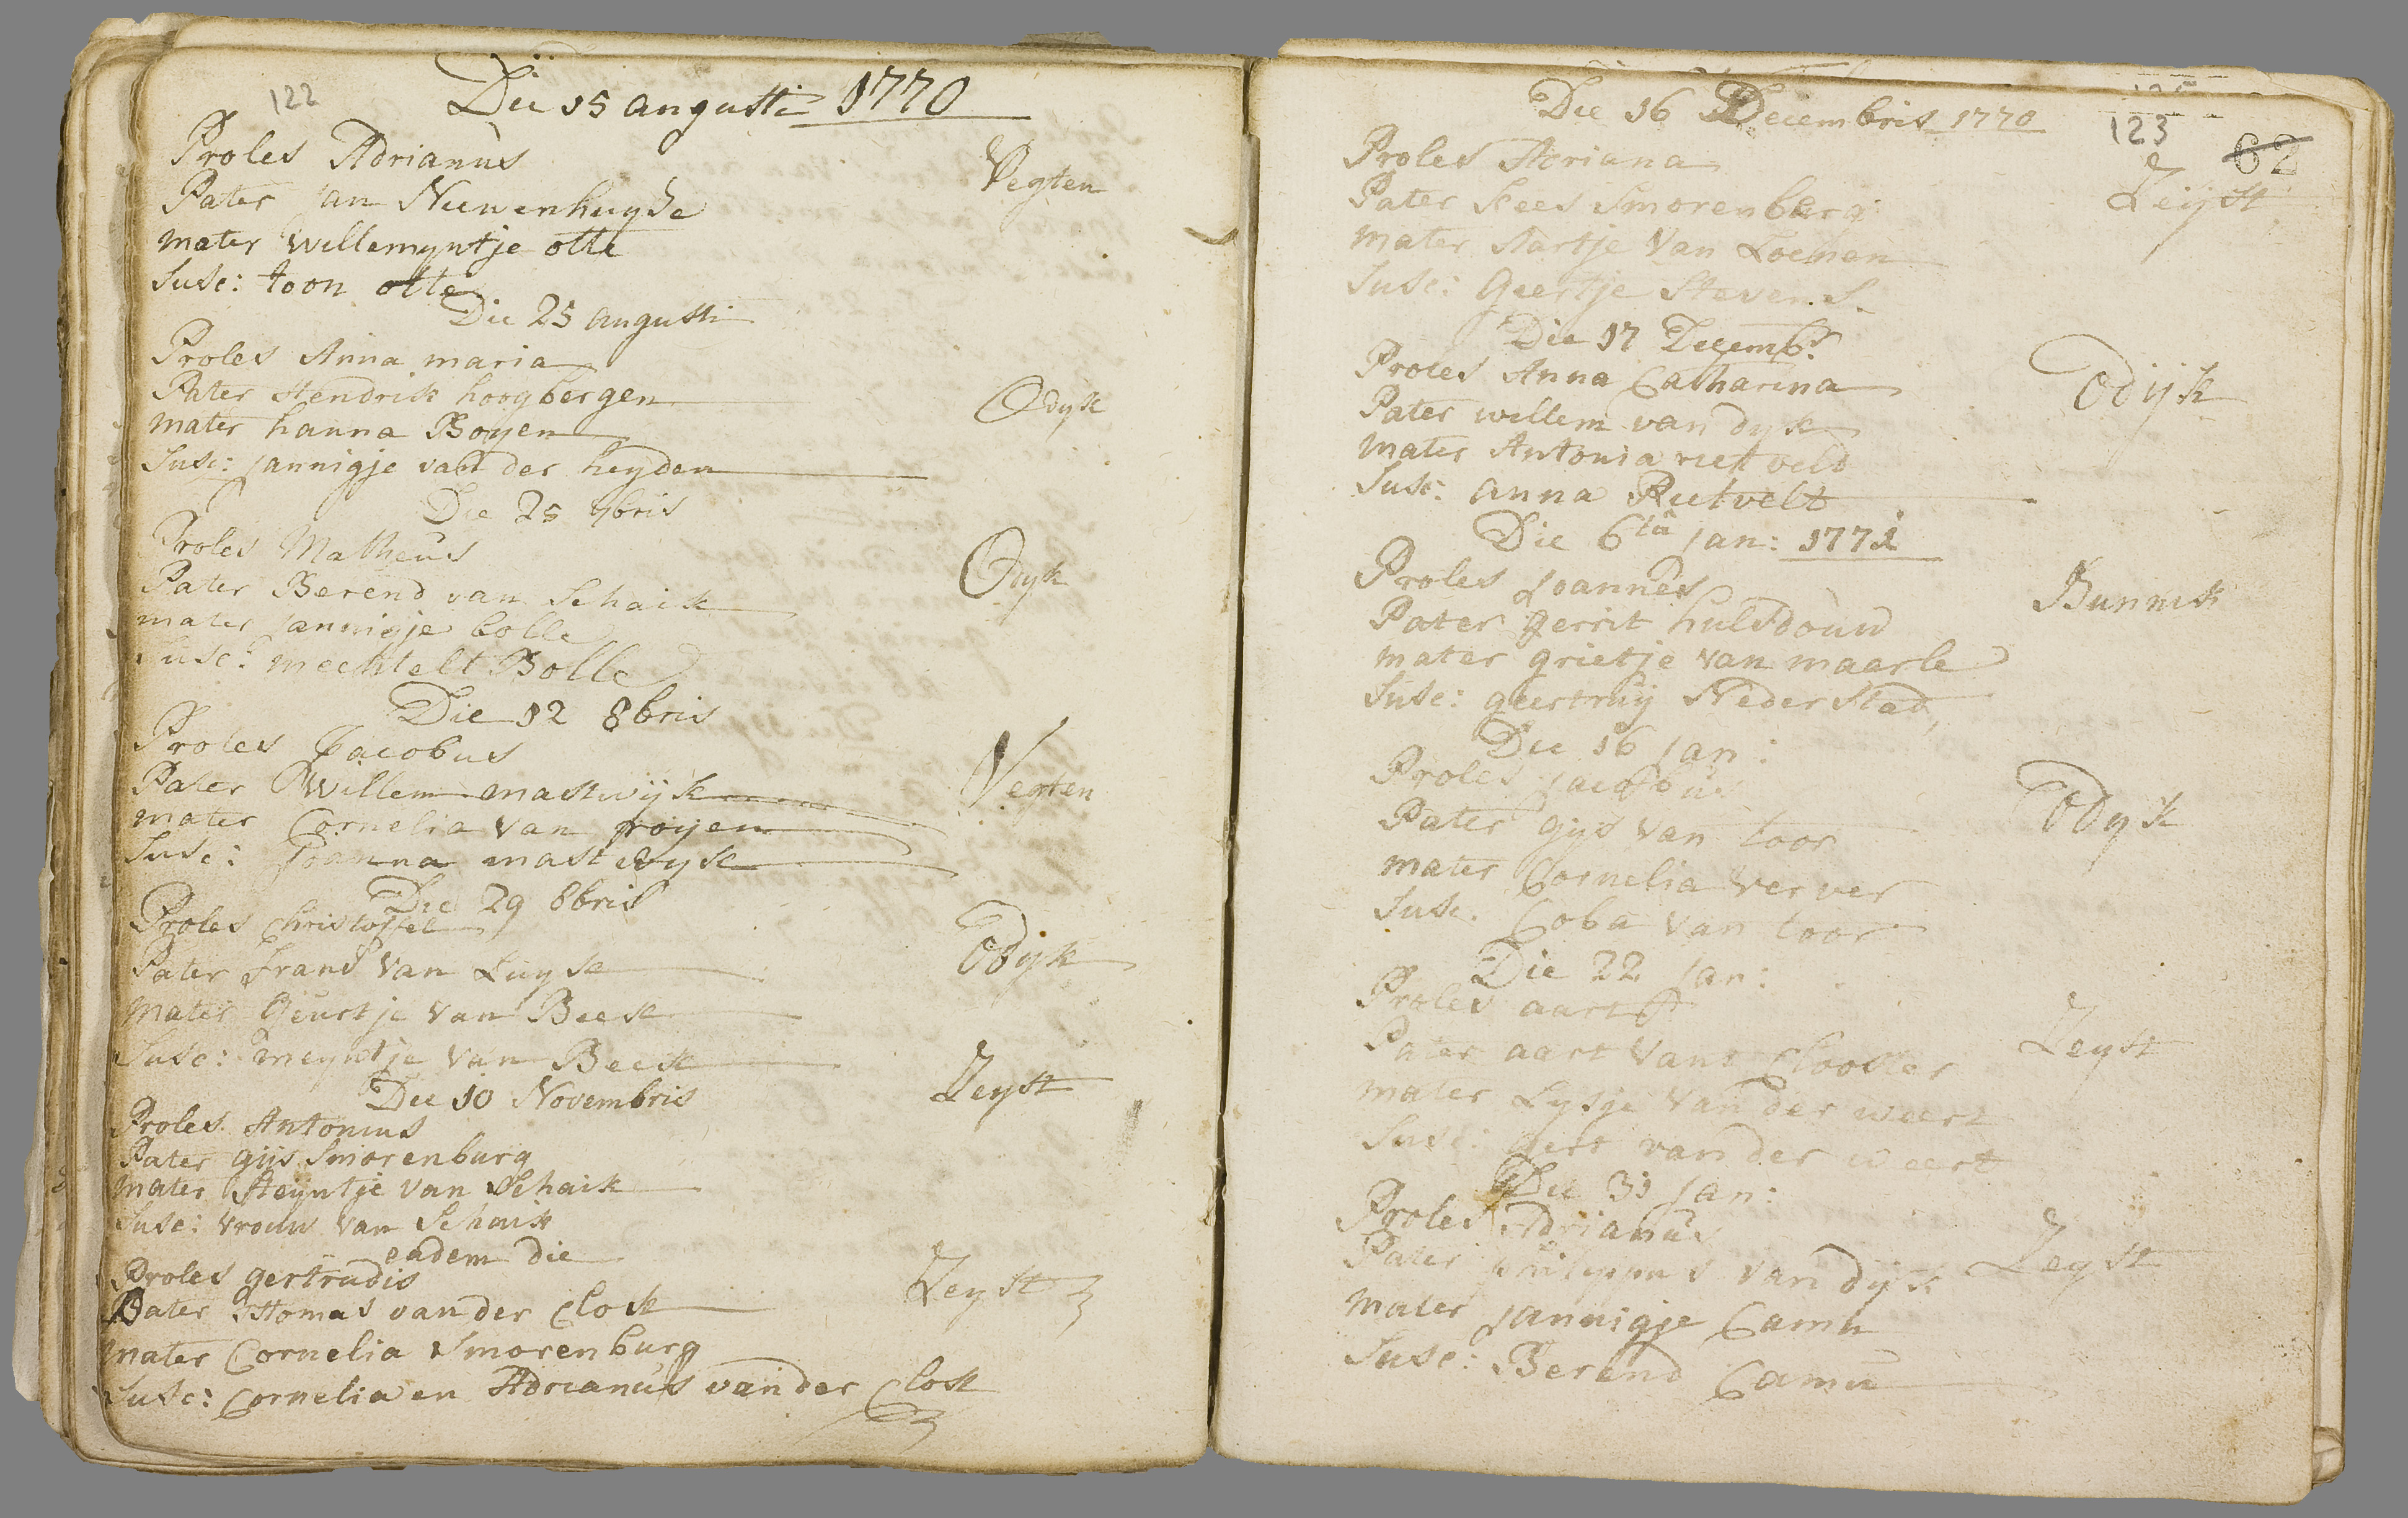 122
Die 15 augusti 1770
Proles Adrianus
Vegten
Pater Jan Nieuwenhuyse
mater willemyntje otte
Susc: toon otte
Die 25 augusti
Proles Anna maria
Pater Hendrik hoogbergen
Odyk
mater hanna Boyen
Susc: Jannigje van der heyden
Die 25 7bris
Proles Matheus
Odyk
Pater Berend van Schaik
mater Jannigje bolle
Susc: mechtelt Bolle
Die 12 8bris
Proles Jacobus
Vegten
Pater Willem mastwijk
mater Cornelia van royen
Susc: Joanna mastwyk
Die 29 8bris
Proles Christoffel
Odyk
Pater frans van Luyk
mater Geurtje van Beek
Susc: meyntje van Beek
Die 10 Novembris
Zeyst
Proles Antonius
Pater gijs Smorenburg
mater Steyntje van Schaik
Susc: vrouw van Schaik
eadem die
Proles gertrudis
Zeyst
Pater Thomas van der Clok
mater Cornelia Smorenburg
Susc: Cornelia en Adrianus van der Clok
Die 16 Decembris 1770
123
62
Proles Adriana
Zeijst
Pater Kees Smorenberg
mater Aartje van Loenen
Susc: Geertje Stevens
Die 17 Decembs
Proles Anna Catharina
Odijk
Pater willem van dyk
mater Antonia rietveld
Susc: anna Rietvelt
Die 6ta Jan: 1771
Proles Joannes
Bunnik
Pater gerrit hulsdouw
mater grietje van maarle
Susc: geertruy Nederstad
Die 16 Jan:
Proles Jacobus
Odyk
Pater gijs van toor
mater Cornelia verver
Susc. Coba van toor
Die 22 Jan:
Proles aart
Zeyst
Pater aart vant Clooster
mater Lysje van der weert
Susc: gert van der weert
Die 31 Jan:
Proles Adrianus
Zeyst
Pater philippus van dijk
mater Jannigje Camu
Susc: Berend Camu